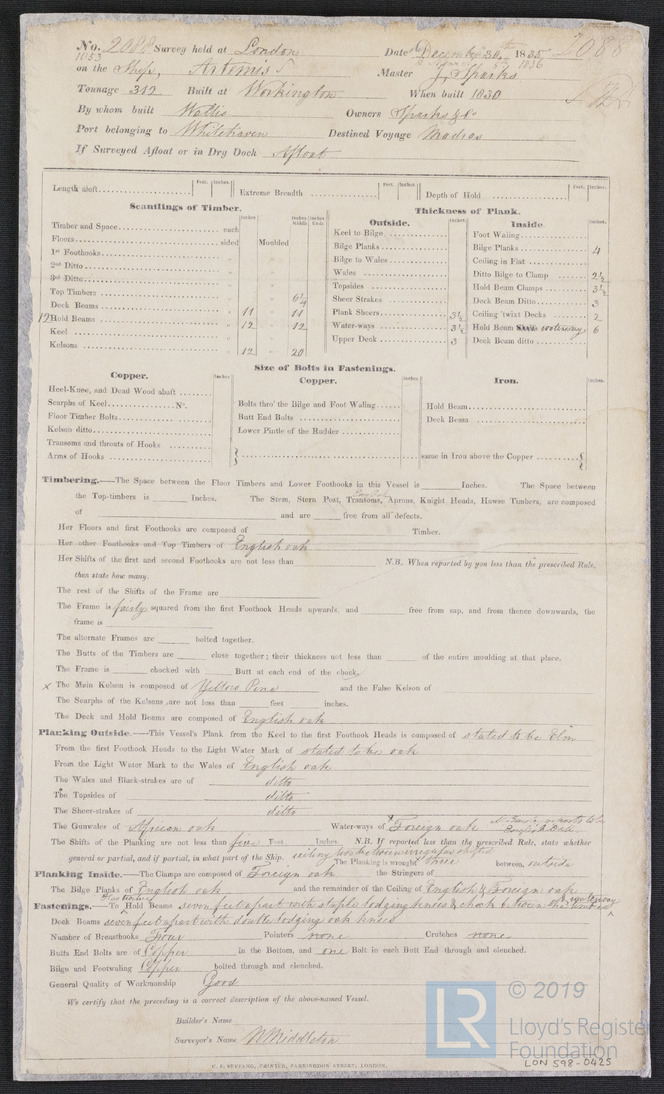 No. 2088 Survey held at London Date December 30th 1835 2088
1053 1836
on the Ship, Artemis Master J. Sparks
Tonnage 312 Built at Workington When built 1830
By whom built Wallis Owners Sparks & Co
Port belonging to Whitehaven Destined Voyage Madras
If Surveyed Afloat or in Dry Dock Afloat
Length aloft Feet. Inches. Extreme Breadth Feet. Inches. Depth of Hold Feet. Inches.
Scantlings of Timber.
Inches Inches Middle Inches Ends
Timber and Space each
Floors sided Moulded
1st Foothooks
2nd Ditto
3rd Ditto
Top Timbers 6¼
Deck Beams 11 11
12 Hold Beams 12 12
Keel
Kelsons 12 20
Thickness of Plank.
Outside. Inches
Keel to Bilge
Bilge Planks
Bilge to Wales
Wales
Topsides
Sheer Strakes
Plank Sheers 3½
Water-ways 3½
Upper Deck 3
Inside. Inches.
Foot Waling
Bilge Planks 4
Ceiling in Flat
Ditto Bilge to Clamp 2½
Hold Beam Clamps 3½
Deck Beam Ditto 3
Ceiling 'twixt Decks 2
Hold Beam waterway 6
Deck Beam ditto
Size of Bolts in Fastenings.
Copper. Inches
Heel-Knee, and Dead Wood abaft
Scarphs of Keel No.
Floor Timber Bolts
Kelson ditto
Transoms and throats of Hooks
Arms of Hooks
Copper. Inches
Bolts thro' the Bilge and Foot Waling
Butt End Bolts
Lower Pintle of the Rudder
Iron. Inches.
Hold Beam
Deck Beam
same in Iron above the Copper
Timbering.—The Space between the Floor Timbers and Lower Foothooks in this Vessel is Inches. The Space between
the Top-timbers is Inches. The Stem, Stern Post, Transoms, Aprons, Knight Heads, Hawse Timbers, are composed
of and are free from all defects.
Her Floors and first Foothooks are composed of Timber.
Her other Foothooks and Top Timbers of English oak
Her Shifts of the first and second Foothooks are not less than N.B. When reported by you less than the prescribed Rule,
than state how many.
The rest of the Shifts of the Frame are
The Frame is fairly squared from the first Foothook Heads upwards, and free from sap, and from thence downwards, the
frame is
The alternate Frames are bolted together.
The Butts of the Timbers are close together; their thickness not less than of the entire moulding at that place.
The Frame is chocked with Butt at each end of the chock.
x The Main Kelson is composed of Yellow Pine and the False Kelson of
The Scarphs of the Kelsons are not less than feet inches.
The Deck and Hold Beams are composed of English oak
Planking Outside.—This Vessel's Plank from the Keel to the first Foothook Heads is composed of stated to be Elm
From the first Foothook Heads to the Light Water Mark of stated to be oak
From the Light Water Mark to the Wales of English oak
The Wales and Black-strakes are of ditto
The Topsides of ditto
The Sheer-strakes of ditto
The Gunwales of African oak Water-ways of Foreign oak
The Shifts of the Planking are not less than five Feet Inches. N.B. If reported less than the prescribed Rule, state whether
general or partial, and if partial, in what part of the Ship. The Planking is wrought three between outside
Planking Inside.—The Clamps are composed of Foreign oak the Stringers of
The Bilge Planks of English oak and the remainder of the Ceiling of English & Foreign oak
Fastenings.—To Hold Beams seven feet apart with staple lodging knees & chock between the timbers & waterway
Deck Beams seven feet apart with double lodging oak knees
Number of Breasthooks Four Pointers none Crutches none
Butts End Bolts are of Copper in the Bottom, and one Bolt in each Butt End through and clenched.
Bilge and Footwaling Copper bolted through and clenched.
General Quality of Workmanship Good
We certify that the preceding is a correct description of the above-named Vessel.
Builder's Name
Surveyor's Name N Middleton
LR © 2019
Lloyd's Register
Foundation
LON 598-0425